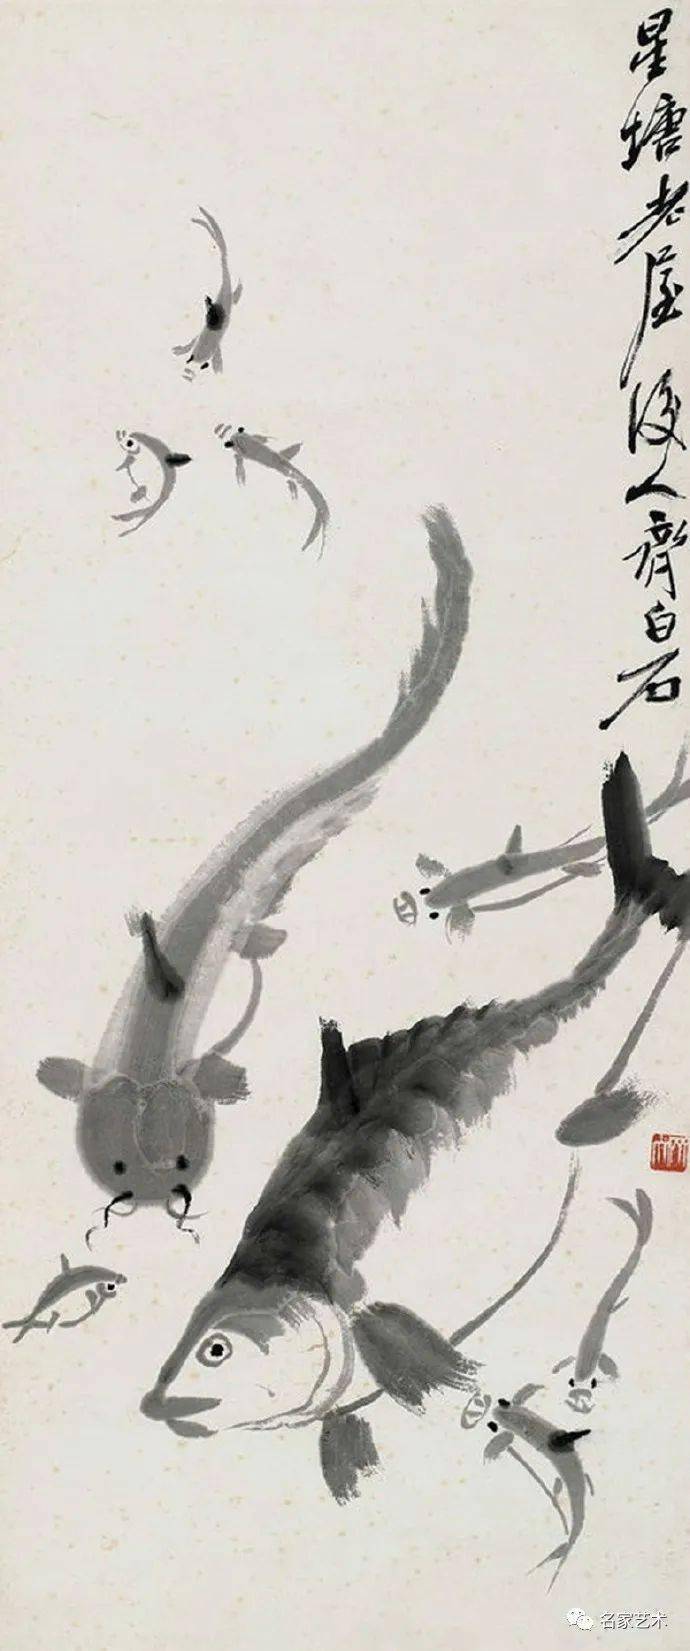 星塘老屋後人齊白石
名家艺术